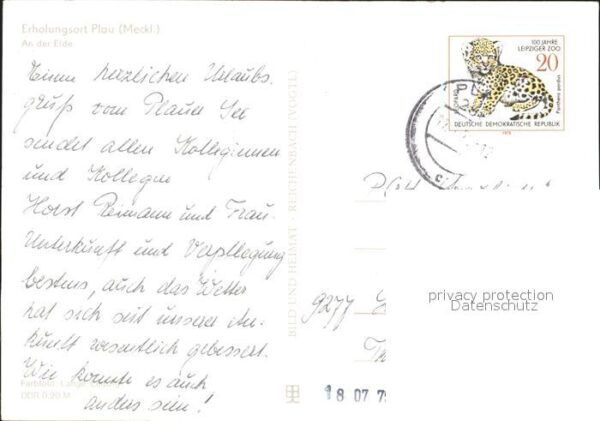 Erholungsort Plau (Meckl.)
An der Elde
Einen herzlichen Urlaubs-
gruß vom Plauer See
sendet allen Kolleginnen
und Kollegen
Horst Reimann und Frau.
Unterkunft und Verpflegung
bestens, auch das Wetter
hat sich seit unserer An-
kunft wesentlich gebessert.
Wie konnte es auch
anders sein!
Farbfoto:
DDR 0,20 M
BILD UND HEIMAT · REICHENBACH (VOGTL)
100 JAHRE
LEIPZIGER ZOO
20
Panthera pardus
DEUTSCHE DEMOKRATISCHE REPUBLIK
1978
9277
Th
privacy protection
Datenschutz
18 07 7